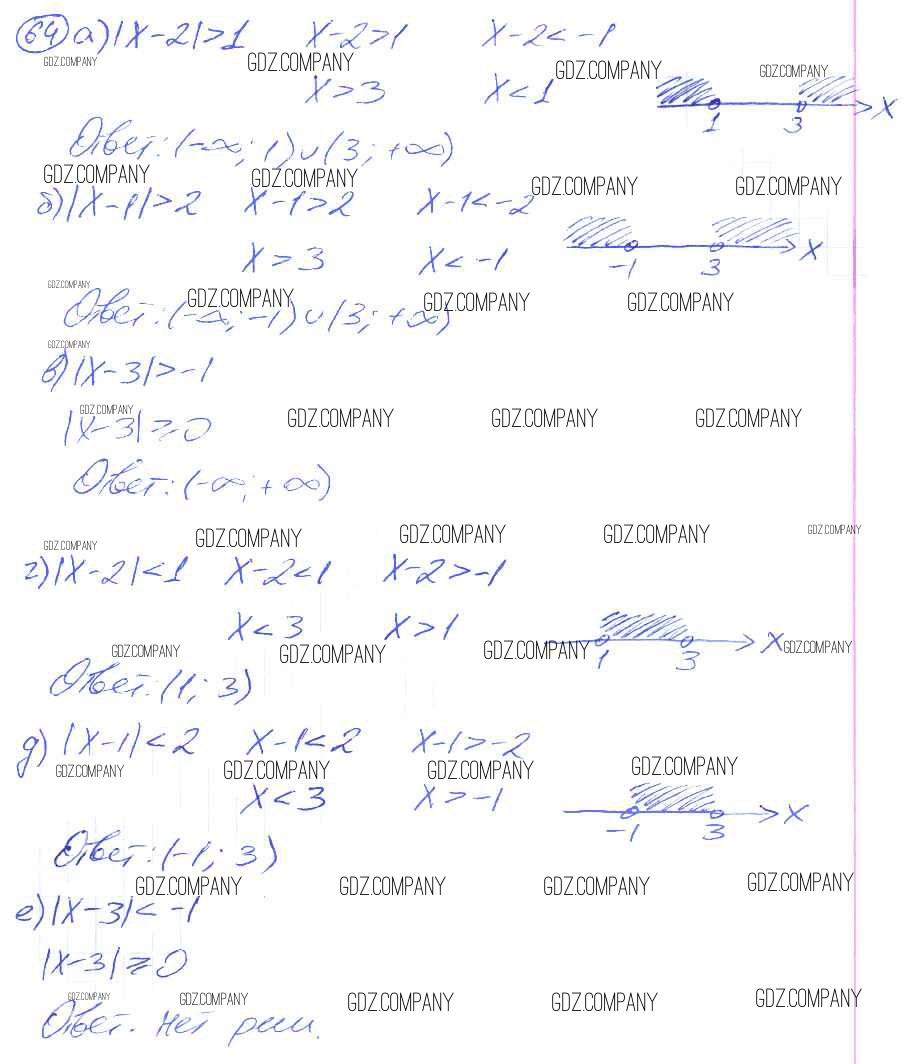 64 а) |x-2|>1 x-2>1 x-2<-1
GDZ.COMPANY GDZ.COMPANY GDZ.COMPANY GDZ.COMPANY
x>3 x<1 1 3 x
Ответ: (-∞; 1)∪(3; +∞)
GDZ.COMPANY GDZ.COMPANY GDZ.COMPANY GDZ.COMPANY
б) |x-1|>2 x-1>2 x-1<-2
x>3 x<-1 -1 3 x
GDZ.COMPANY GDZ.COMPANY GDZ.COMPANY GDZ.COMPANY
Ответ: (-∞; -1)∪(3; +∞)
GDZ.COMPANY
в) |x-3|>-1
GDZ.COMPANY GDZ.COMPANY GDZ.COMPANY GDZ.COMPANY
|x-3|≥0
Ответ: (-∞; +∞)
GDZ.COMPANY GDZ.COMPANY GDZ.COMPANY GDZ.COMPANY GDZ.COMPANY
г) |x-2|<1 x-2<1 x-2>-1
x<3 x>1 1 3 x
GDZ.COMPANY GDZ.COMPANY GDZ.COMPANY GDZ.COMPANY
Ответ: (1; 3)
д) |x-1|<2 x-1<2 x-1>-2
GDZ.COMPANY GDZ.COMPANY GDZ.COMPANY GDZ.COMPANY
x<3 x>-1 -1 3 x
Ответ: (-1; 3)
GDZ.COMPANY GDZ.COMPANY GDZ.COMPANY GDZ.COMPANY
е) |x-3|<-1
|x-3|≥0
GDZ.COMPANY GDZ.COMPANY GDZ.COMPANY GDZ.COMPANY GDZ.COMPANY
Ответ. Нет реш.